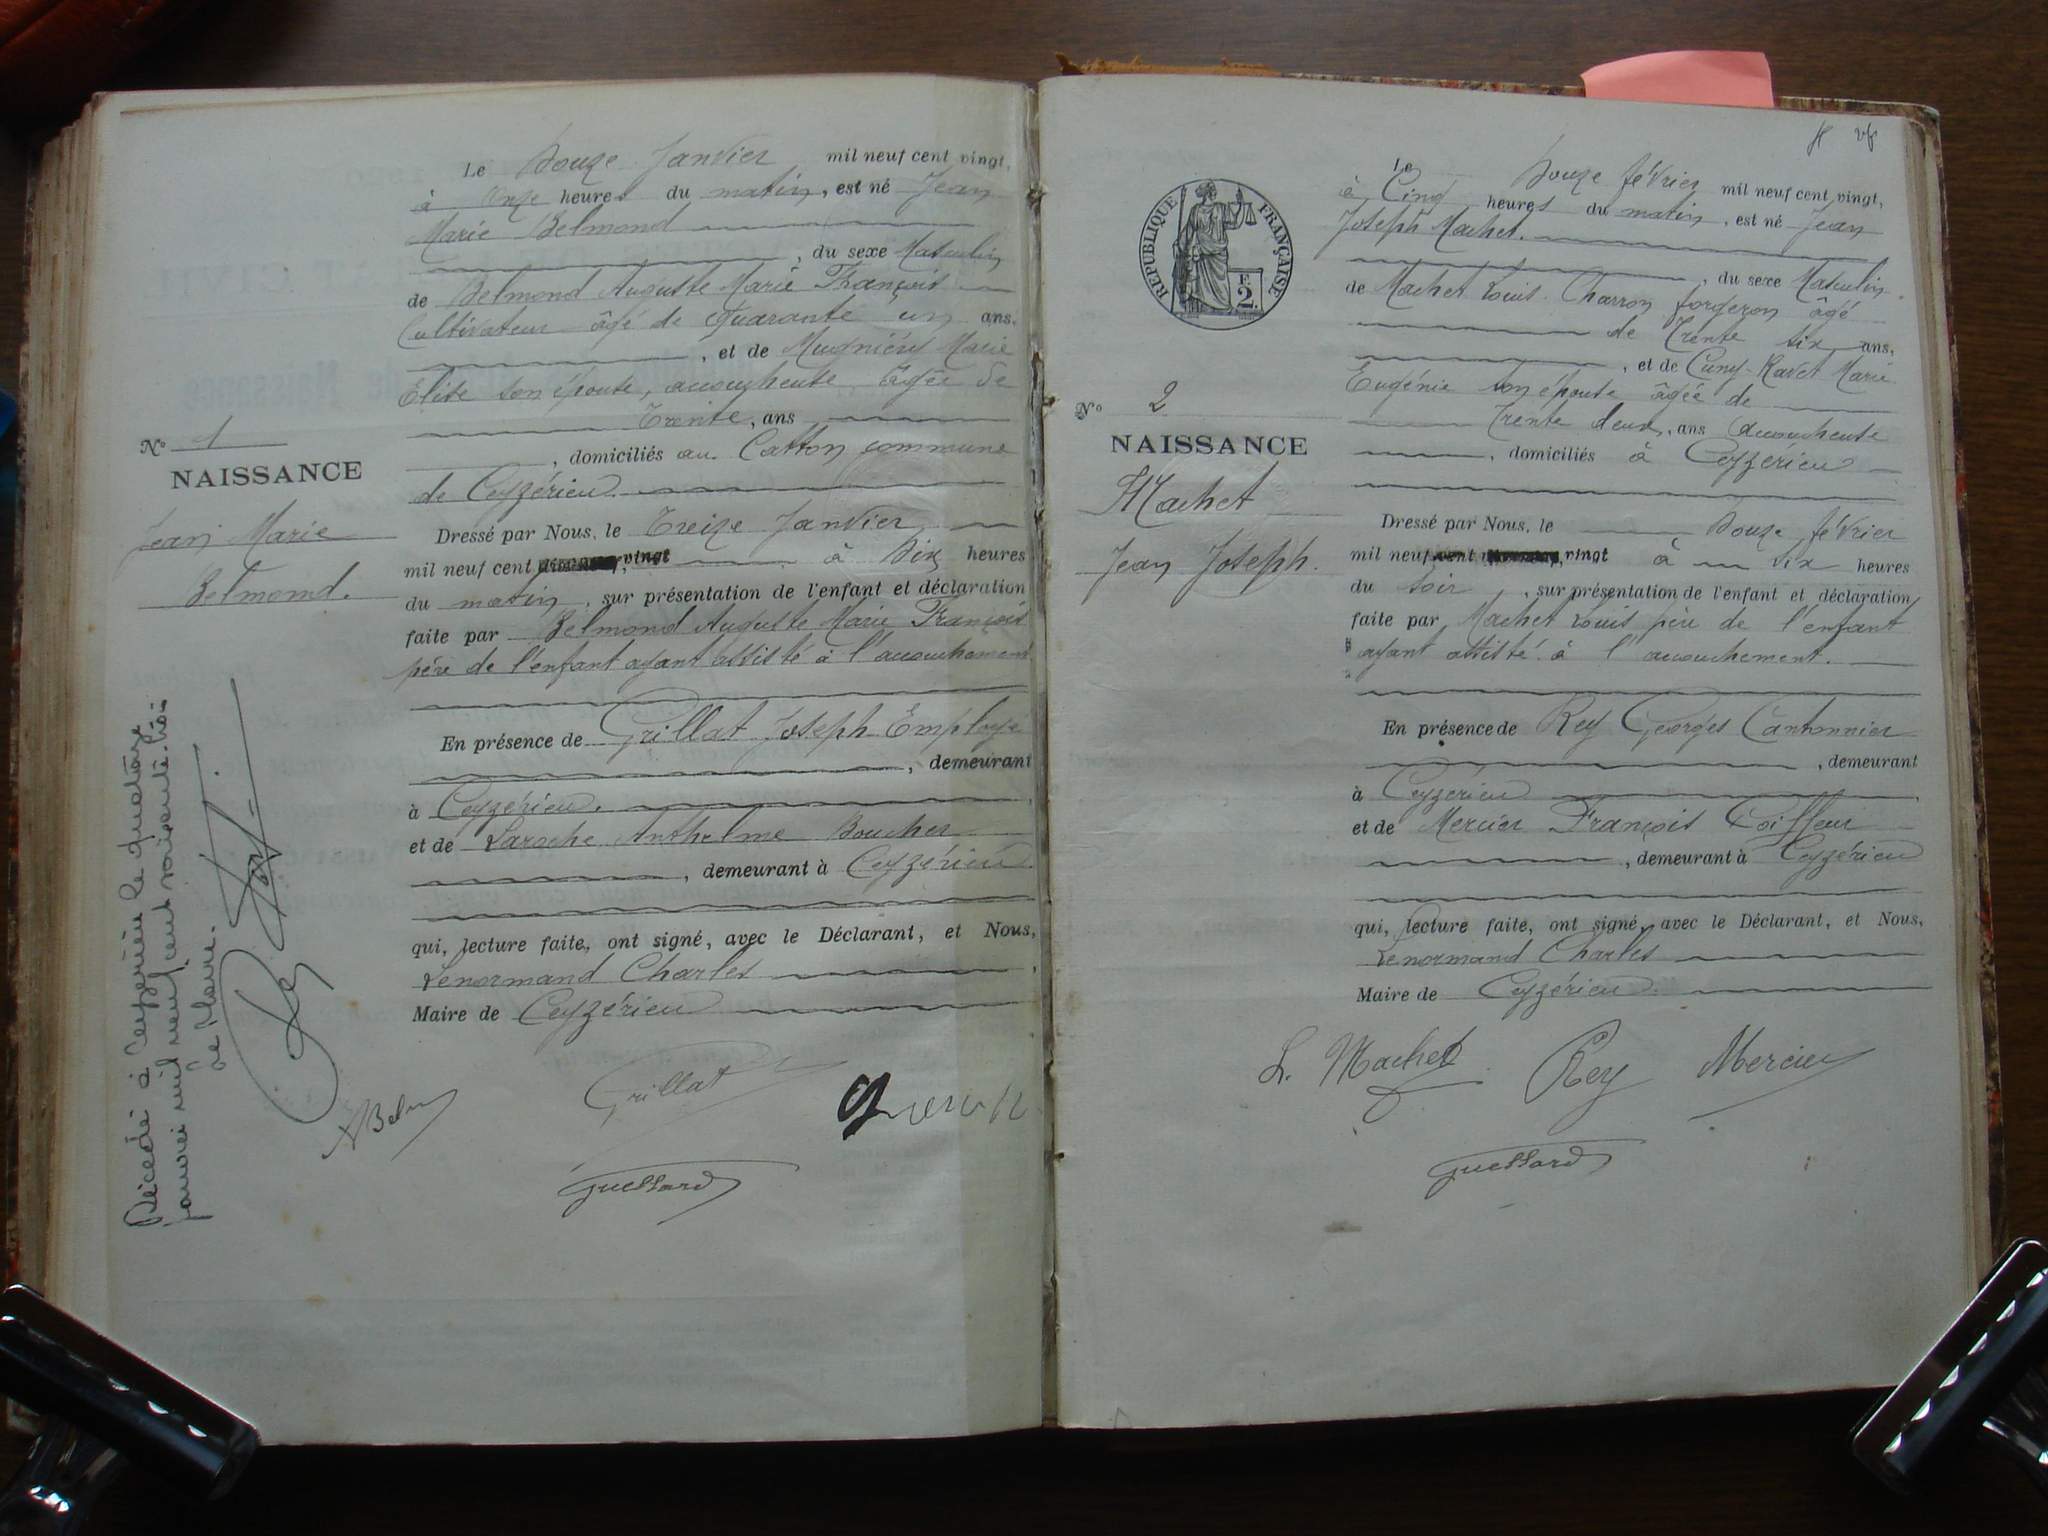 Le Douze Janvier mil neuf cent vingt,
à Onze heures du matin, est né Jean
Marie Belmond
, du sexe Masculin
de Belmond Auguste Marie François
Cultivateur âgé de Quarante un ans,
, et de Mugniéry Marie
Elise son épouse, accoucheuse, âgée de
Trente, ans
, domiciliés au Catton commune
de Ceyzérieu.
Nº 1
NAISSANCE
Jean Marie
Belmond.
Dressé par Nous, le Treize Janvier
mil neuf cent vingt à Dix heures
du matin, sur présentation de l'enfant et déclaration
faite par Belmond Auguste Marie François
père de l'enfant ayant assisté à l'accouchement
En présence de Grillat Joseph Employé
, demeurant
à Ceyzérieu.
et de Laroche Anthelme Boucher
, demeurant à Ceyzérieu.
qui, lecture faite, ont signé, avec le Déclarant, et Nous,
Lenormand Charles
Maire de Ceyzérieu
Décédé à Ceyzérieu le quatorze
janvier mil neuf cent soixante trois
Le Maire.
Grillat
Guessard
RÉPUBLIQUE FRANÇAISE
F.
2.
Le Douze février mil neuf cent vingt,
à Cinq heures du matin, est né Jean
Joseph Machet.
, du sexe Masculin.
de Machet Louis. Charron forgeron âgé
de Trente six ans,
, et de Cuny-Ravet Marie
Eugénie son épouse âgée de
Trente deux, ans accoucheuse
, domiciliés à Ceyzérieu
Nº 2
NAISSANCE
Machet
Jean Joseph.
Dressé par Nous, le Douze février
mil neuf cent vingt à six heures
du soir, sur présentation de l'enfant et déclaration
faite par Machet Louis père de l'enfant
ayant assisté à l'accouchement.
En présence de Rey Georges Cantonnier
, demeurant
à Ceyzérieu
et de Mercier François Coiffeur
, demeurant à Ceyzérieu
qui, lecture faite, ont signé, avec le Déclarant, et Nous,
Lenormand Charles
Maire de Ceyzérieu.
L. Machet Rey Mercier
Guessard